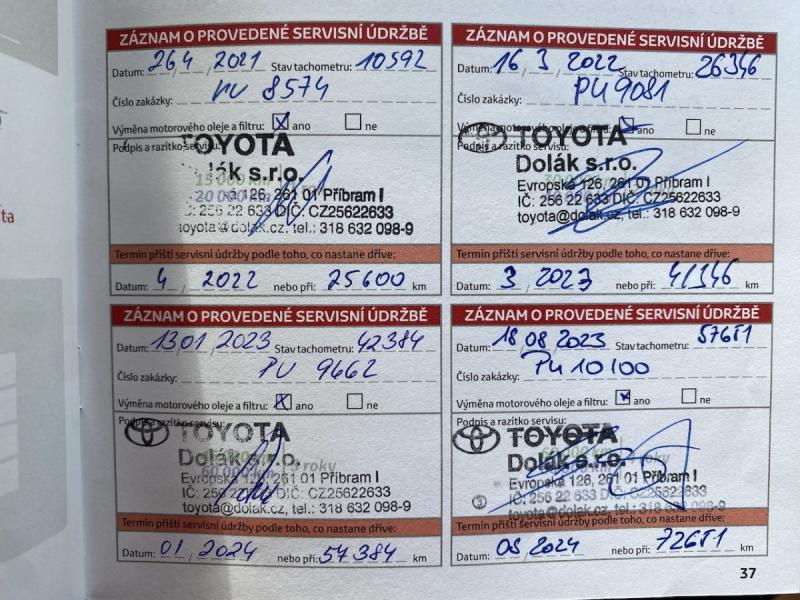 ZÁZNAM O PROVEDENÉ SERVISNÍ ÚDRŽBĚ
Datum: 26 4 2021 Stav tachometru: 10592
Číslo zakázky: PU 8574
Výměna motorového oleje a filtru: X ano ne
Podpis a razítko servisu:
TOYOTA
Dolák s.r.o.
15 000 km
20 000 km
126, 261 01 Příbram I
IČ: 256 22 633 DIČ: CZ25622633
toyota@dolak.cz, tel.: 318 632 098-9
Termín příští servisní údržby podle toho, co nastane dříve:
Datum: 4 2022 nebo při: 25600 km
ZÁZNAM O PROVEDENÉ SERVISNÍ ÚDRŽBĚ
Datum: 16 3 2022 Stav tachometru: 26346
Číslo zakázky: PU 9081
Výměna motorového oleje a filtru: ano ne
Podpis a razítko servisu:
TOYOTA
Dolák s.r.o.
Evropská 126, 261 01 Příbram I
IČ: 256 22 633 DIČ: CZ25622633
toyota@dolak.cz, tel.: 318 632 098-9
Termín příští servisní údržby podle toho, co nastane dříve:
Datum: 3 2023 nebo při: 41346 km
ZÁZNAM O PROVEDENÉ SERVISNÍ ÚDRŽBĚ
Datum: 13 01 2023 Stav tachometru: 42384
Číslo zakázky: PU 9662
Výměna motorového oleje a filtru: X ano ne
Podpis a razítko servisu:
TOYOTA
Dolák s.r.o.
60 000 km roky
Evropská 126, 261 01 Příbram I
IČ: 256 22 633 DIČ: CZ25622633
toyota@dolak.cz, tel.: 318 632 098-9
Termín příští servisní údržby podle toho, co nastane dříve:
Datum: 01 2024 nebo při: 57384 km
ZÁZNAM O PROVEDENÉ SERVISNÍ ÚDRŽBĚ
Datum: 18 08 2023 Stav tachometru: 57611
Číslo zakázky: PU 10100
Výměna motorového oleje a filtru: X ano ne
Podpis a razítko servisu:
TOYOTA
Dolák s.r.o.
roky
Evropská 126, 261 01 Příbram I
IČ: 256 22 633 DIČ: CZ25622633
toyota@dolak.cz, tel.: 318 632 098-9
Termín příští servisní údržby podle toho, co nastane dříve:
Datum: 08 2024 nebo při: 72611 km
37